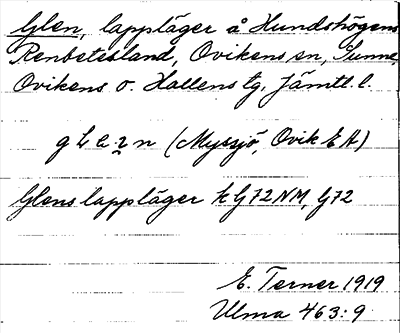 Glen, lappläger å Hundshögens
Renbetesland, Ovikens sn, Sunne,
Ovikens o. Hallens tg. Jämtl. l.
(Myssjö, Ovik E A)
Glens lappläger k G72NM, G72
E. Terner 1919
Ulma 463:9